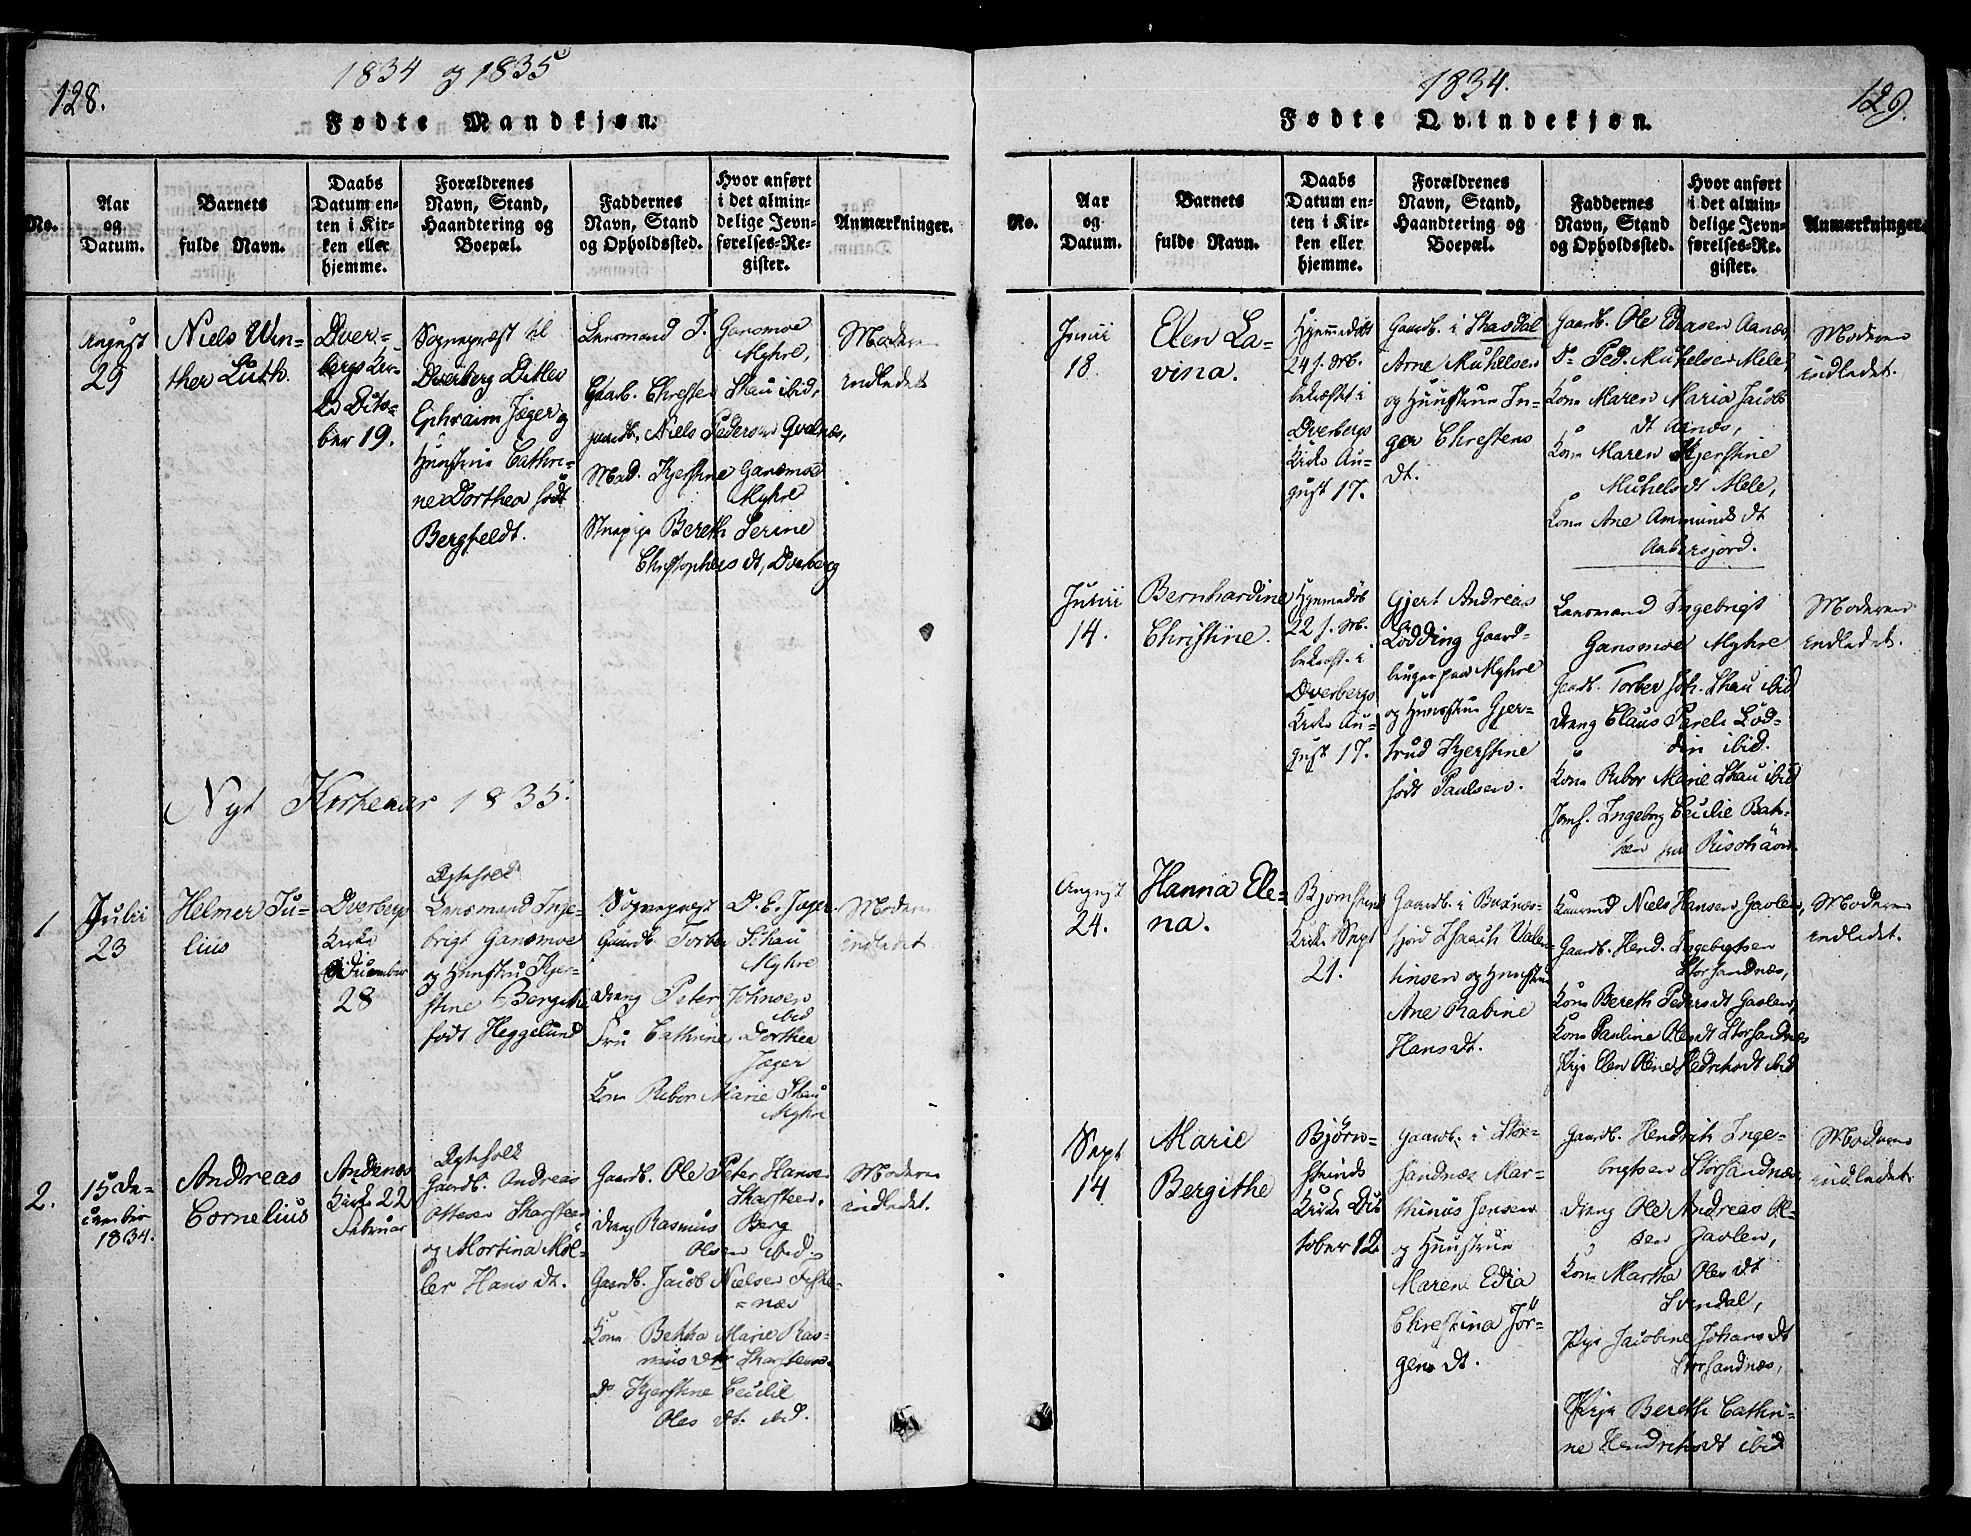 128.
1834 og 1835
Fødte Mandkjøn.
No.
Aar
og
Datum.
Barnets
fulde Navn.
Daabs
Datum en-
ten i Kir-
ken eller
hjemme.
Forældrenes
Navn, Stand,
Haandtering og
Boepæl.
Faddernes
Navn, Stand
og Opholdssted.
Hvor anført
i det almin-
delige Jevn-
førelses-Re-
gister.
Anmærkninger.
August
29
Niels Win-
ther Luth.
Dver-
bergs Kir-
ke Octo-
ber 19.
Sognepræst til
Dverberg Ditlev
Ephraim Jæger og
Hunstrue Cathri-
ne Dorthea født
Bergfeldt.
Lensmand I. Gansmoe
Myhre,
Gaarb. Chresten Skau ibid,
gaardb. Niels Pedersen Qvalnæs,
Mad. Kjerstine Gansmoe
Myhre
Bereth Serine
Christophersdt, Dverberg
Moderen
indledet
Nyt Kirkeaar 1835.
1
Julii
23
Helmer Ju-
lius
Dverbergs
Kirke
December
28
Ægtefolk
Lensmand Inge-
brigt Gansmoe
og Hunstru Kjer-
stine Bergithe
født Heggelund
Sognepræst D. E. Jæger
Gaardb. Torber Schau
Myhre
Dreng Peter Johnsen
ibid
Fru Cathrine Dorthea
Jæger
Kone Rebor Marie Skau
Myhre
Moderen
indledet
2.
15 De-
cember
1834.
Andreas
Cornelius
Andenæs
Kirke 22
Februar
Ægtefolk
Gaardb. Andreas
Ottesen Skarsteen
og Martina Møl-
ler Hansdt.
Gaardb. Ole Peter Hansen
Skarsteen.
Dreng Rasmus Berg
Olsen ibid-
Gaardb. Jacob Nielsen Fiske-
=næs
Kone Bekka Marie Ras-
musdtr Skarsteen.
do Kjerstine Cecilie
Olesdt. ibid.
Moderen
indledet.
1834.
129.
Fødte Qvindekjøn.
No.
Aar
og
Datum.
Barnets
fulde Navn.
Daabs
Datum en-
ten i Kir-
ken eller
hjemme.
Forældrenes
Navn, Stand,
Haandtering og
Boepæl.
Faddernes
Navn, Stand
og Opholdssted.
Hvor anført
i det almin-
delige Jevn-
førelses-Re-
gister.
Anmærkninger.
Junii
18.
Elen La-
vina.
Hjemmedøbt
24 s. M.
bekræftet i
Dverbergs
Kirke Au-
gust 17.
Gaardb. i Skogdal
Arne Mikkelsen
og Hunstrue In-
ger Chrestens
dt.
Gaardb. Ole Eliasen Aanæs,
do Ped. Mikkelsen Mele,
Kone Maren Maria Jacobs
dt Aanæs,
Kone Maren Kjerstine
Mikkelsdt Mele,
Kone Ane Ammundsdt
Aabersjord.
Moderen
indledet.
Junii
14.
Bernhardine
Christine.
Hjemmedøb
22 s. M.
bekræft. i
Dverbergs
Kirke Au-
gust 17.
Gjert Andreas
Lødding Gaard-
bruger paa Myhre
og Hunstrue Gjer-
trud Kjerstine
født Paulsen.
Lensmand Ingebrigt
Gansmoe Myhre
Gaardb. Torber Joh. Skau ibid
Dreng Claus Parels Lød-
din ibid.
Kone Rebor Marie Skau ibid
Jomf. Ingeborg Cecilie Bak-
ken paa Risøhavn
Moderen
indledet.
August
24.
Hanna Ele-
na.
Bjørnskind
Kirke Sept
21.
Gaardb. i Buxnæs-
fjord Isaach Valen-
tinsen og Hunstrue
Ane Rabine
Hansdt.
Niels Hansen Gavlen,
Gaardb. Hend. Ingebrigtsen
Storsandnæs,
Kone Bereth Pedersdt Gavlen,
Kone Pauline Olesdt Storsandnæs
Pige Elen Oline Hedrichsdt ibid
Moderen
indledet.
Sept
14
Marie
Bergithe
Bjørn-
skinds
Kirke Oc-
tober 12
Gaardb. i Stor-
sandnæs Mar-
thinus Jensen
og Hunstrue
Maren Edia
Chrestina Jør-
gensdt.
Gaardb. Hendrich Inge-
brigtsen Storsandnæs,
Dreng Ole Andreas Ol-
sen Gavlen,
Kone Martha Olesdt
Svendal,
Pige Jacobine Johansdt
Storsandnæs,
Pige Bereth Cathri-
ne Hendrichsdt ibid
Moderen
indledet.